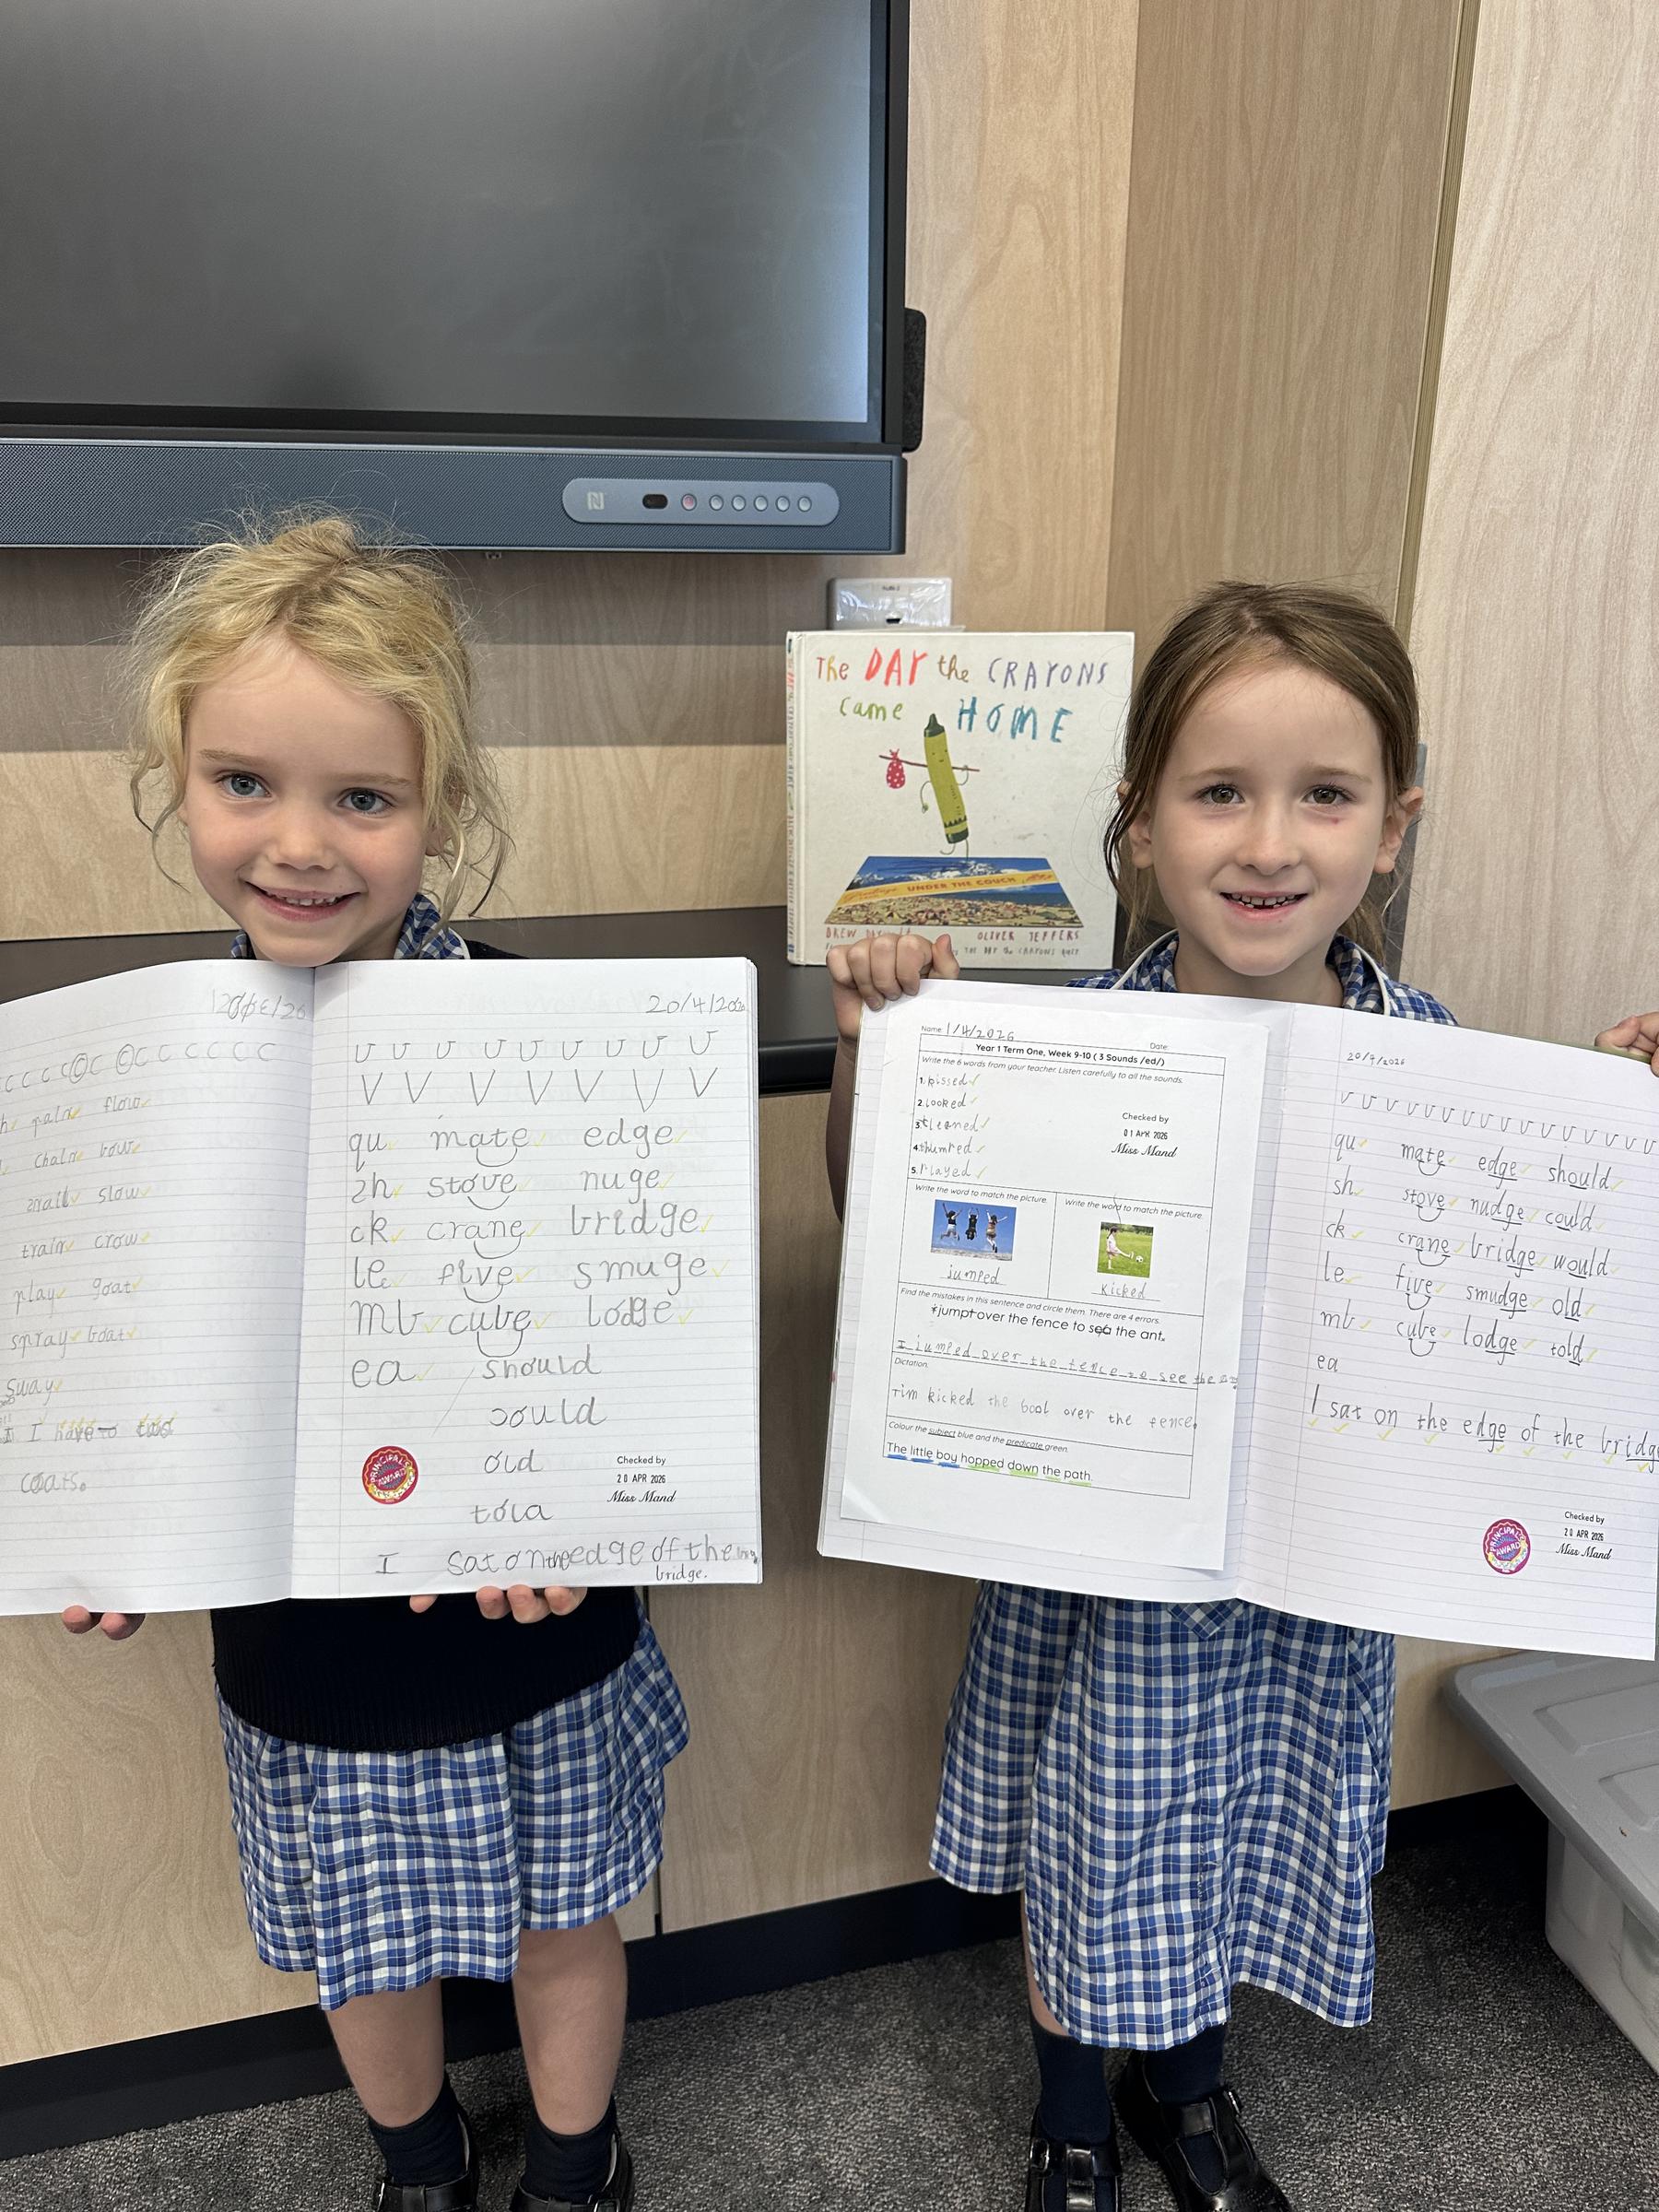 The DAY the CRAYONS
came HOME
UNDER THE COUCH
DREW
OLIVER JEFFERS
THE DAY THE CRAYONS QUIT
C C C C C C C C C C C C
pain flow
chain bow
snail slow
train crow
play goat
spray boat
sway
I have two
coats.
20/4/2026
v v v v v v v v
V V V V V V V
qu mate edge
sh stove nuge
ck crane bridge
le five smuge
mb cube lodge
ea should
could
old
told
PRINCIPAL'S AWARD
Checked by
20 APR 2026
Miss Mand
I sat on the edge of the
bridge.
Name: 1/4/2026 Date:
Year 1 Term One, Week 9-10 ( 3 Sounds /ed/)
Write the 6 words from your teacher. Listen carefully to all the sounds.
1. kissed
2. looked
3. cleaned
4. thumped
5. Played
Checked by
01 APR 2026
Miss Mand
Write the word to match the picture.
jumped
Write the word to match the picture.
kicked
Find the mistakes in this sentence and circle them. There are 4 errors.
jumpt over the fence to sea the ant.
I jumped over the fence to see the
Dictation.
Tim kicked the bool over the fence.
Colour the subject blue and the predicate green.
The little boy hopped down the path.
20/4/2026
v v v v v v v v v v v v v v
qu mate edge should
sh stove nudge could
ck crane bridge would
le five smudge old
mb cube lodge told
ea
I sat on the edge of the bridge
PRINCIPAL'S AWARD
Checked by
20 APR 2026
Miss Mand